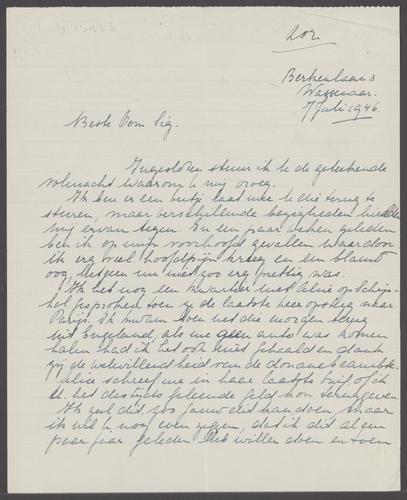 Berkenlaan 3
Wassenaar.
7 Juli 1946.
Beste Oom Sig.
Ingesloten stuur ik U de geteekende
volmacht waarom U mij vroeg.
Ik ben er een beetje laat mee U die terug te
sturen, maar verschillende bezigheden hielden
mij ervan tegen. En een paar weken geleden
ben ik op mijn voorhoofd gevallen waardoor
ik erg veel hoofdpijn kreeg en een blauw
oog, hetgeen me niet zoo erg prettig was.
Ik heb nog een kwartier met Alice op Schip-
hol gesproken toen zij de laatste keer opsteeg naar
Parijs. Ik kwam toen net die morgen terug
uit Engeland, als me geen auto was komen
halen had ik het ook niet gehaald en dank
zij de welwillendheid van de douanebeambte.
Alice schreef me in haar laatste brief of ik
U het destijds geleende geld kon teruggeven.
Ik zal dit zoo gauw dit kan doen, maar
ik wil U nog even zeggen, dat ik dit al een
paar jaar geleden heb willen doen en toen